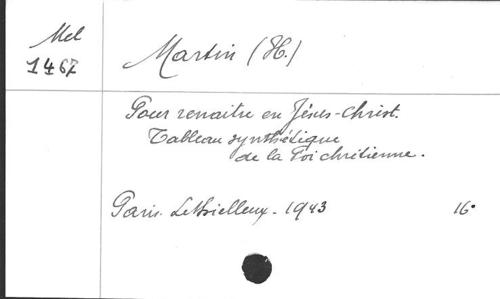 Mel
1467
Martin (H.)
Pour renaitre en Jésus-Christ.
Tableau synthétique
de la Foi chrétienne.
Paris. Lethielleux. 1943 16°